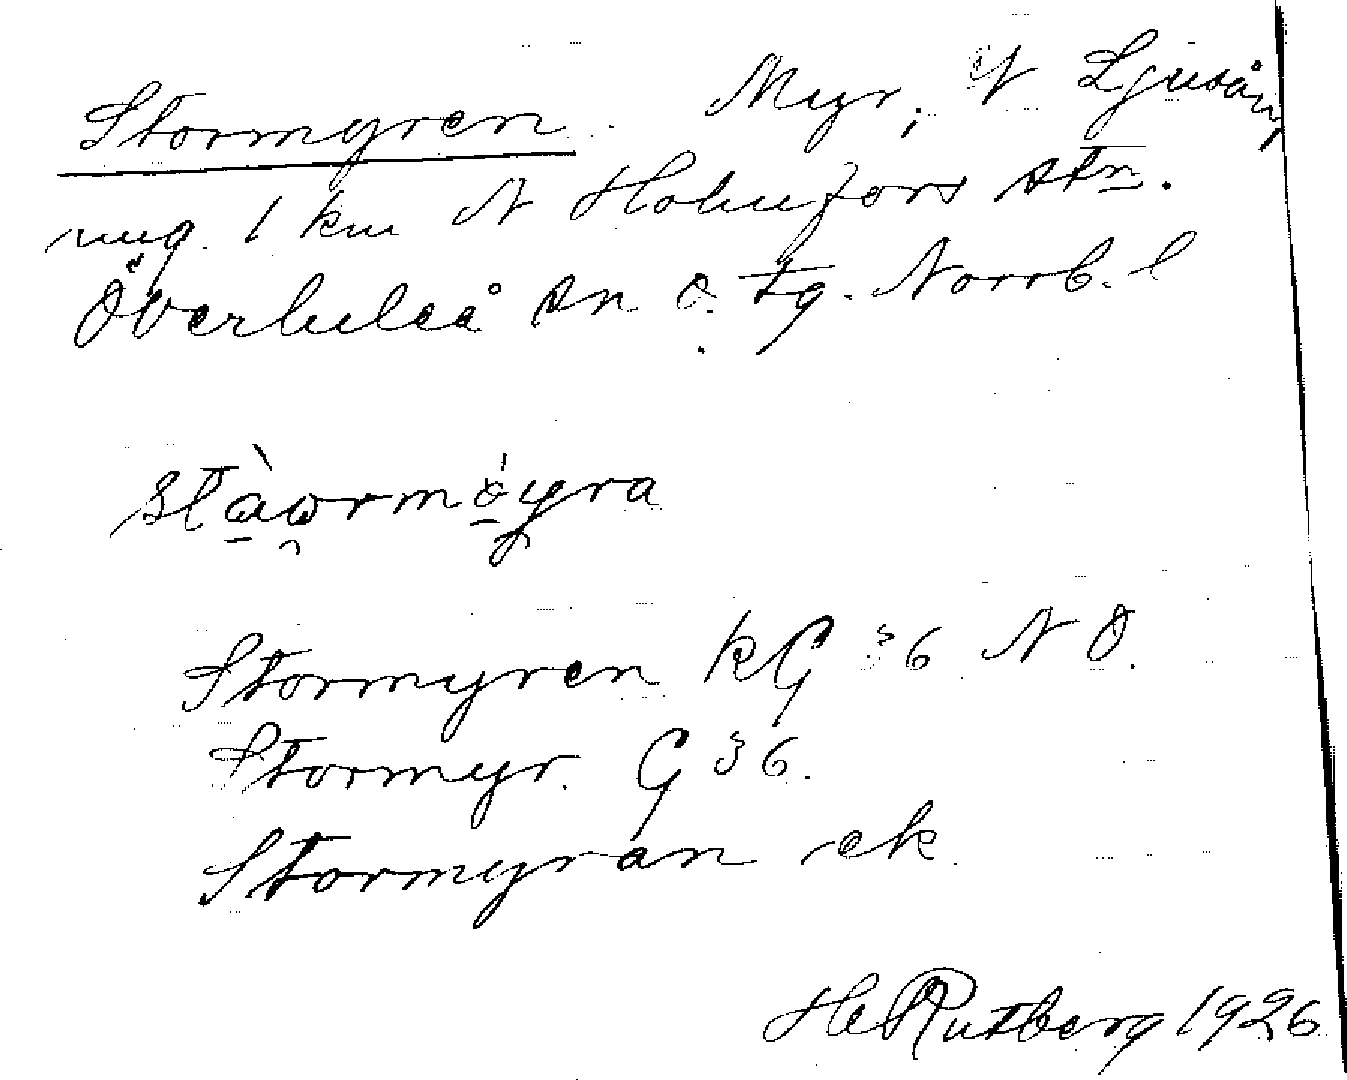 Stormyren. Myr, N Ljusån,
ung. 1 km N Holmfors stn.
Överluleå sn o. tg. Norrb. l
Stormyren kG 36 NO.
Stormyr. G 36.
Stormyran ek.
H Rutberg 1926